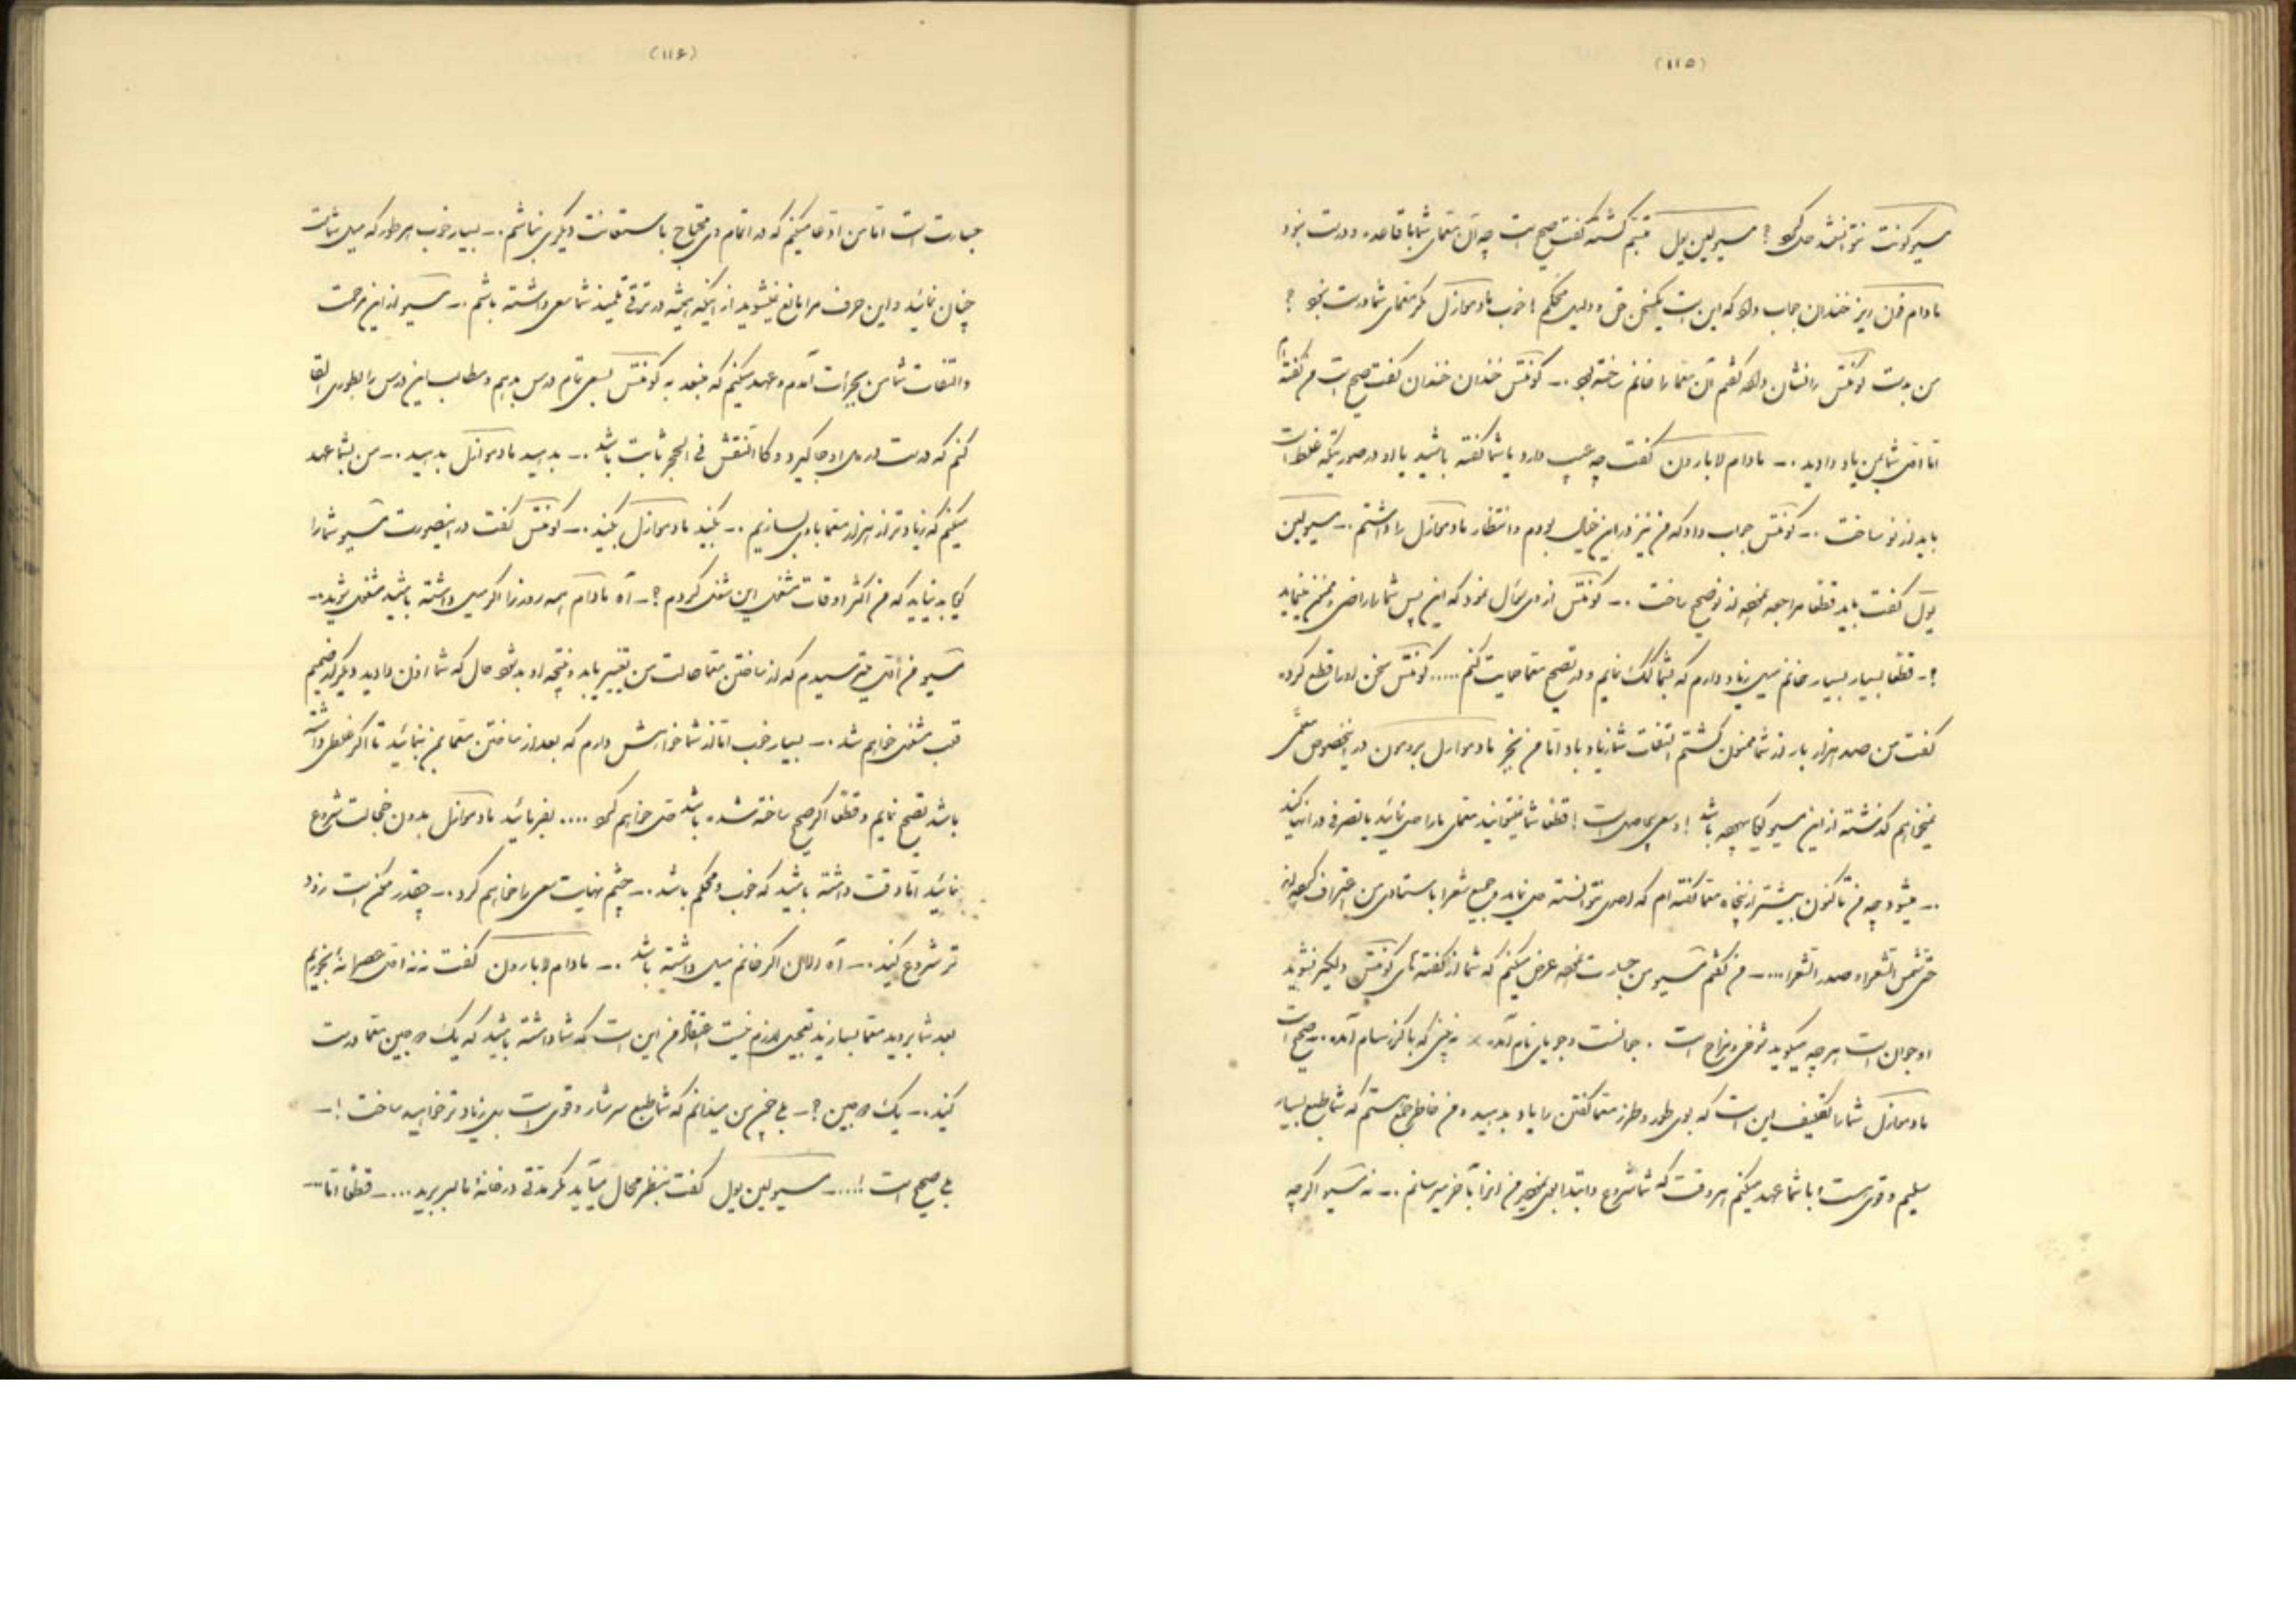 (۱۱۵)
مسیو کونت نتوانستند حل کرد؟ مسیو لین پول متبسّم گشته گفت صحیح است چه آن معمّای شما با قاعده و درست نبود
مادام فن ریز خندان جواب داد که این است یکنفر حق و دلیل محکم! خوب مادموازل مگر معمّای شما درست نبود؟
من بدست کونتس را نشان داده گفتم آن معمّا را خانم ساخته بود .– کونتس خندان خندان گفت صحیح است من گفته‌ام
امّا شما بمن یاد دادید .– مادام لابارون گفت چه عیب دارد یا شما گفته باشید یا او در صورتیکه غلط است
باید از نو ساخت .– کونتس جواب داد که من نیز در این خیال بودم و انتظار مادموازل را داشتم .– مسیو لین
پول گفت باید قطعا مراجعه نموده از نو صحیح ساخت .– کونتس از وی سؤال نمود که این پس شما را راضی و ممنون مینماید
؟– قطعا بسیار بسیار خانم میل زیاد دارم که بشما کمک نمایم و در تصحیح معمّا حمایت کنم ..... کونتس سخن او را قطع کرده
گفت من صد هزار بار از شما ممنون گشتم التفات شما زیاد باد امّا من بجز مادموازل بردمون در اینخصوص معلّمی
نمیخواهم گذشته از این مسیو لیکا سهچه باشد! و سعی بیحاصل است! قطعا شما نمیتوانید معمّای ما را حل نمائید یا تصرفی در آنها کنید
.– میشود چه من تاکنون بیشتر از پنجاه معمّا گفته‌ام که احدی نتوانسته حل نماید و جمیع شعرا باستادی من اعتراف کرده‌اند
حتّی شمس الشعراء و صدر الشعرا ....– من گفتم مسیو من جسارت نموده عرض میکنم که شما از گفته‌های کونتس دلگیر نشوید
او جوان است هر چه میگوید شوخی و مزاح است .
مادموازل شما را تکلیف این است که بوی طور و طرز معمّا گفتن را یاد بدهید و من خاطر جمع هستم که شما طبع بسیار
سلیم و قوی است! با شما عهد میکنم هر وقت که شما شروع و ابتدا بوی نمودید من آنرا بآخر میرسانم .– نه مسیو اگرچه
(۱۱۶)
جسارت است امّا من ادّعا میکنم که در اتمام وی محتاج باستعانت دیگری نباشم .– بسیار خوب هر طور که میل شماست
چنان نمائید و این حرف مرا مانع نمیشوید از اینکه همیشه در ترقّی تلمیذ شما سعی داشته باشم .– مسیو از این مرحمت
و التفات شما من بجرأت آمدم و عهد میکنم که منبعد به کونتس بسعی تام درس بدهم و مطالب این درس را بطوری القا
کنم که درست در دل او جا گیرد و کالنقش فی الحجر ثابت باشد .– بدهید مادموازل بدهید .– من بشما عهد
میکنم که زیادتر از هزار معمّا با وی بسازیم .– بکنید مادموازل بکنید .– کونتس گفت در اینصورت مسیو شما را
گمان بد نیاید که من اکثر اوقات مشغول این شغل گردم؟– آه مادام همه روز را اگر میل داشته باشید مشغول شوید .–
مسیو من میترسیدم که از ساختن معمّا حالت من تغییر یابد و نتیجه او بد شود حال که شما اذن دادید دیگر از صمیم
قلب مشغول خواهم شد .– بسیار خوب امّا از شما خواهش دارم که بعد از ساختن معمّا بمن بنمائید تا اگر غلطی داشته
باشد تصحیح نمایم و قطعا اگر صحیح ساخته شده باشد حل خواهم کرد .... بفرمائید مادموازل بدون خجالت شروع
نمائید امّا دقّت داشته باشید که خوب و محکم باشد .– چشم نهایت سعی را خواهم کرد .– چقدر ممکن است زود
تر شروع کنید .– آه الان اگر خانم میل داشته باشد .– مادام لابارون گفت نه نه عصرانه بخوریم
بعد شما بروید معمّا بسازید تعجیل لازم نیست اعتقاد من این است که شما داشته باشید که یک دوجین معمّا درست
کنید .– یک دوجین؟– بلی خانم من میدانم که شما طبع سرشار و قوی است بلکه زیادتر خواهید ساخت!–
بلی صحیح است! ....– مسیو لین پول گفت بنظر محال میآید مگر مدّتی در خانه ما بسر برید ....– قطعا امّا ....